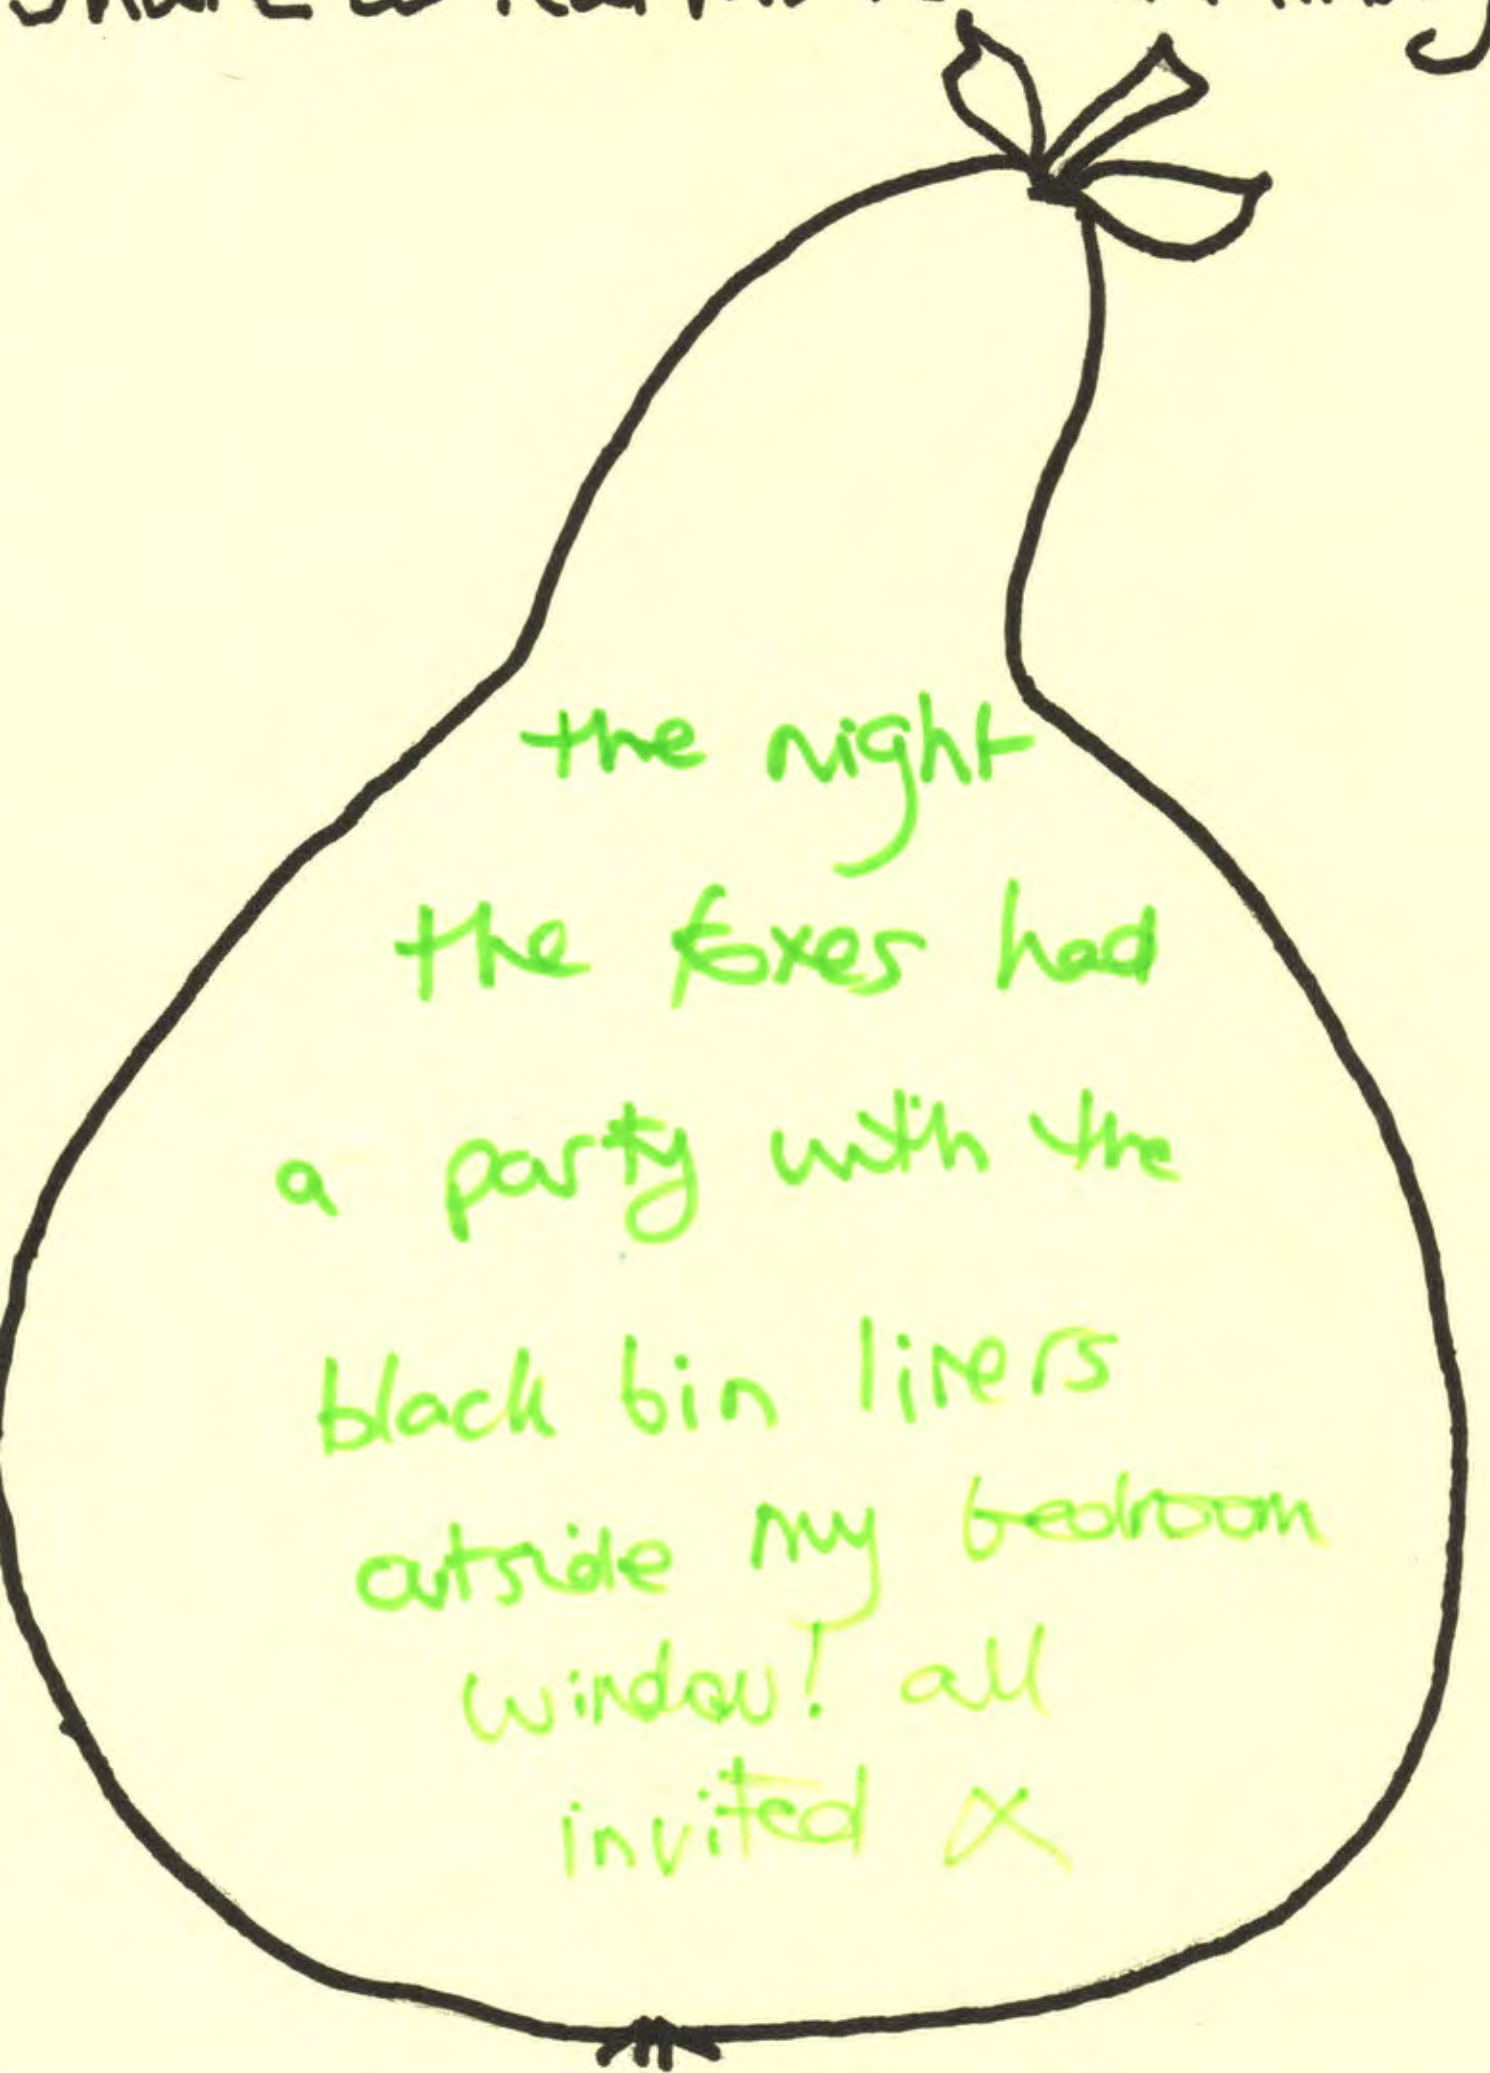 share a
the night
the foxes had
a party with the
black bin liners
outside my bedroom
window! all
invited x